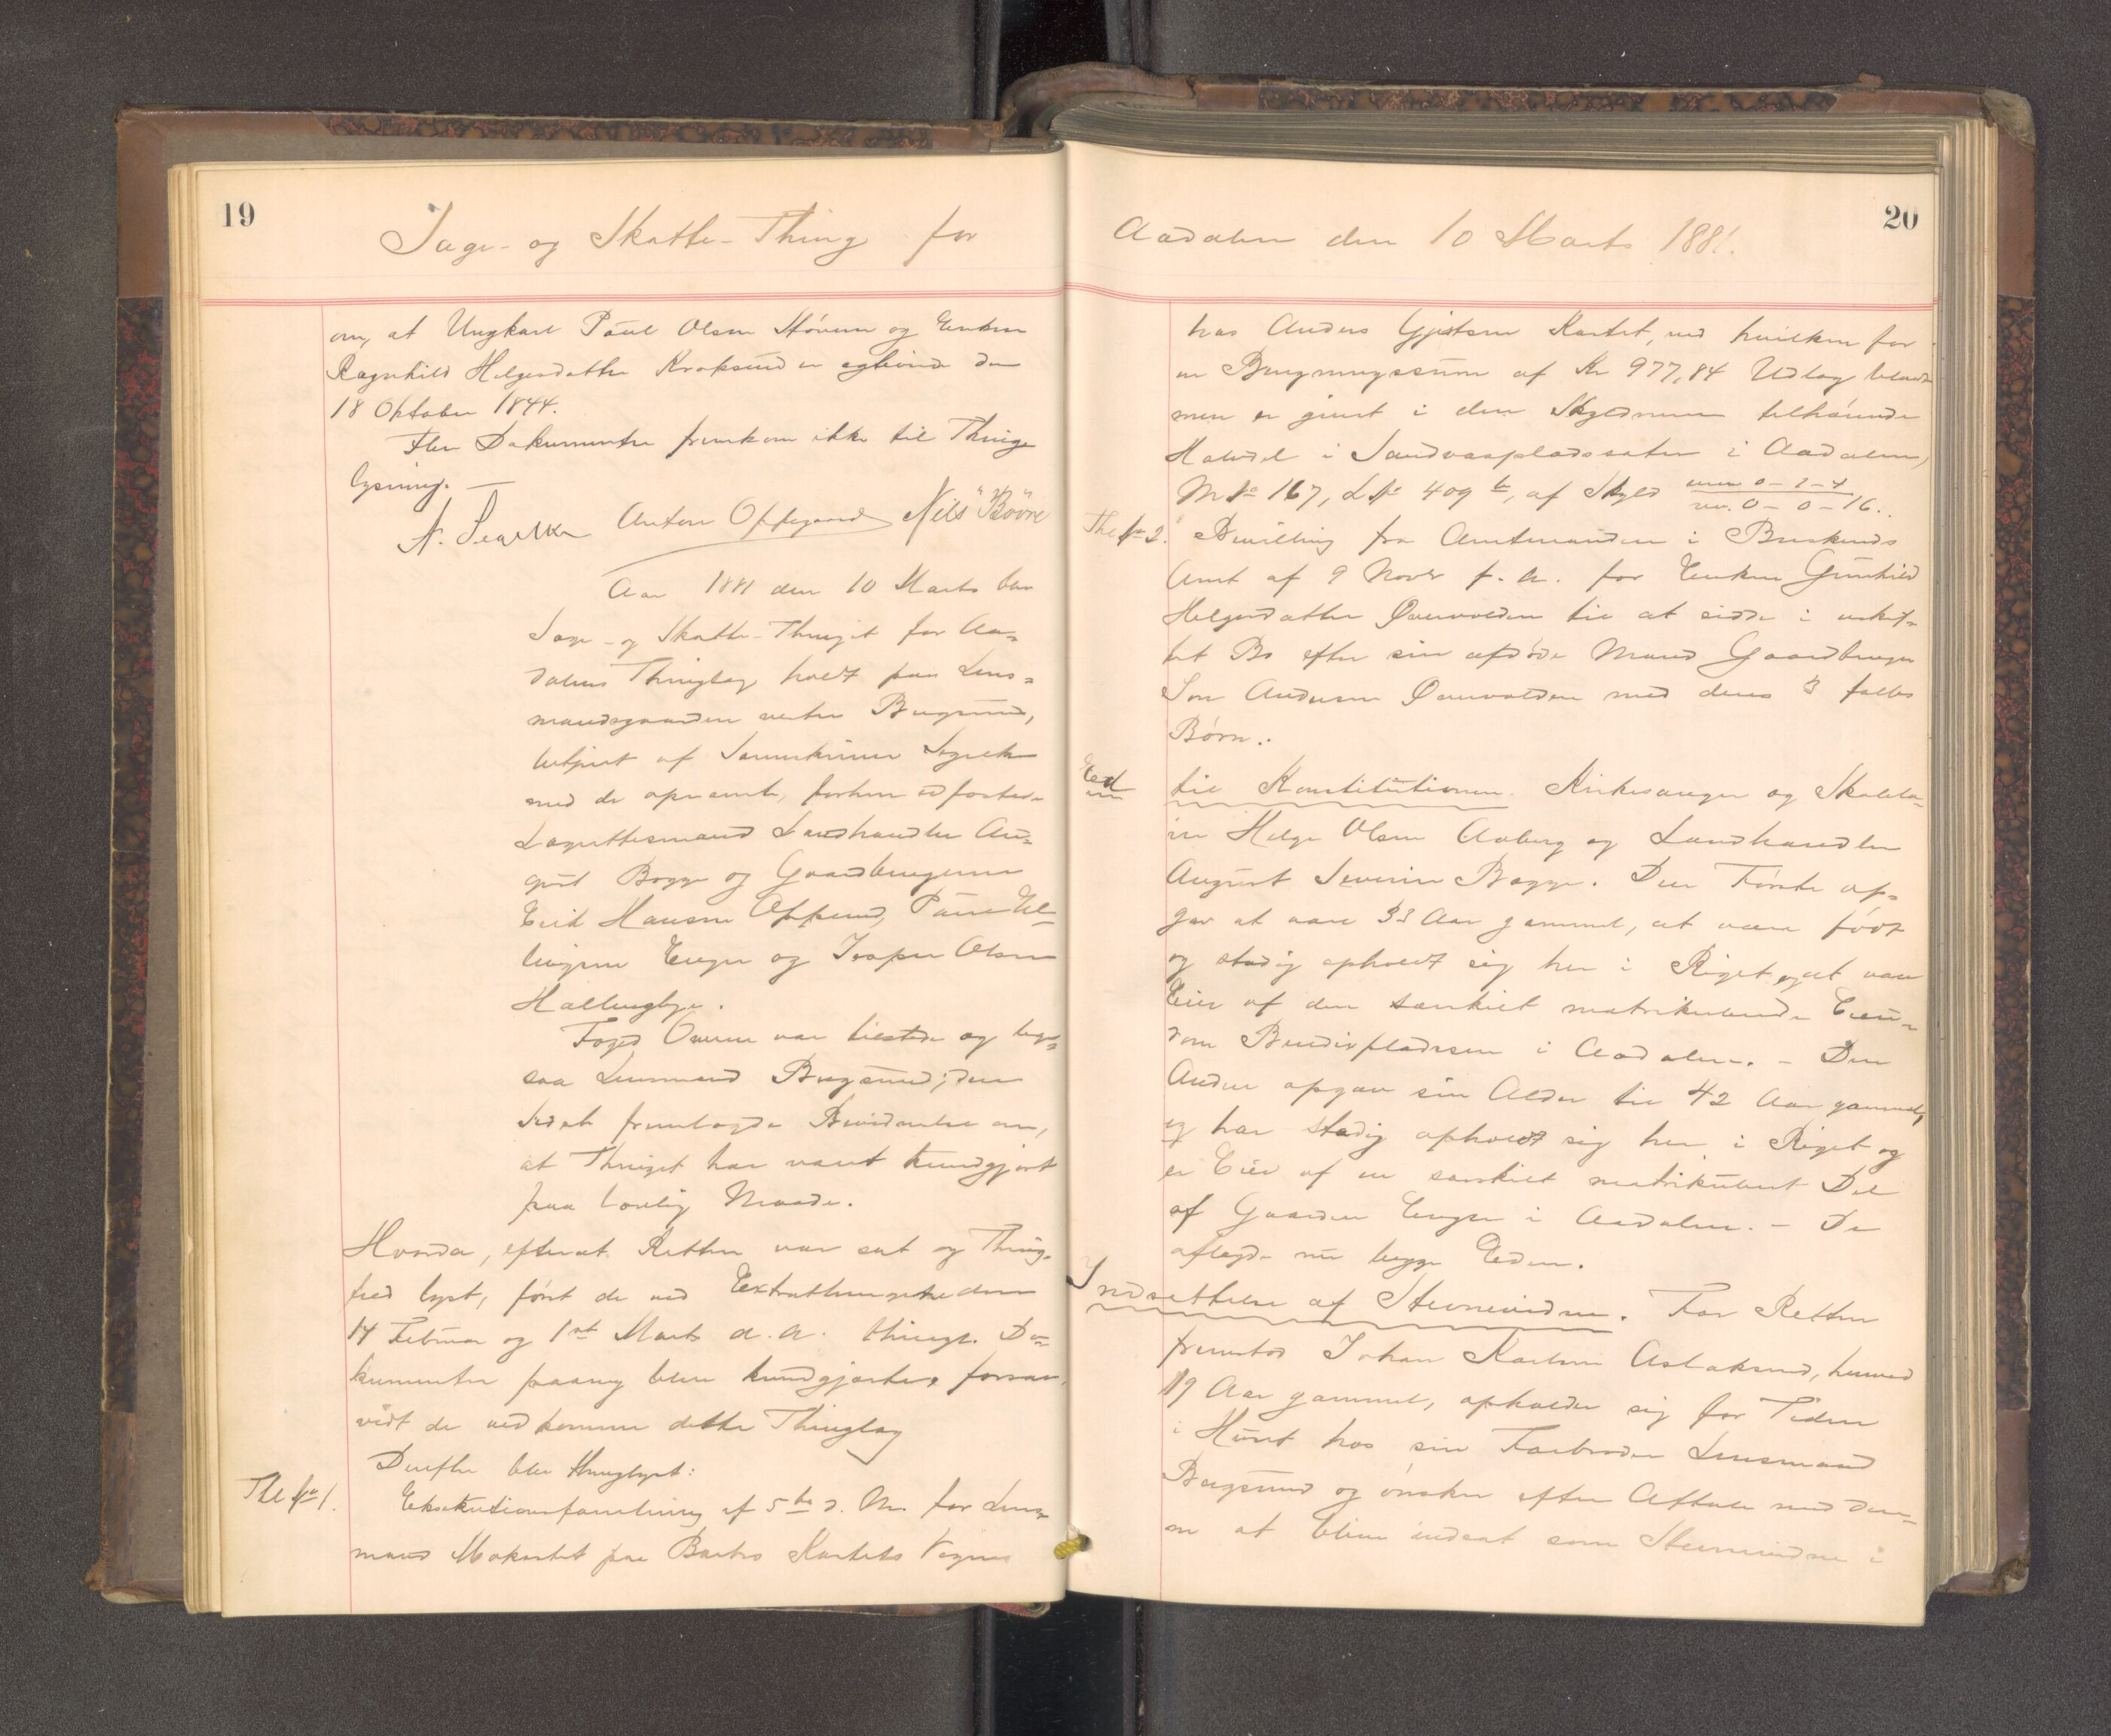 19
Sage- og Skatte-Thing for
om, at Ungkarl Paul Olsen Støveren og Enken
Ragnhild Helgesdatter Kroksund er egteviede den
18 Oktober 1844.
Flere Dokumenter fremkom ikke til Thing-
lysning. —
Anton Oppegaard Nils Bøvre
Aar 1881 den 10 Marts blev
Sage- og Skatte-Thinget for Aa-
dalens Thinglag holdt paa Lens-
mandsgaarden Bergsund,
betjent af Sorenskriver
med de opnævnte, forhen edfæstede
Lagrettesmænd Landhandler Au-
gust Bagge og Gaardbrugerne
Erik Hansen Oppsund, Paul El-
lingsen Enger og Jesper Olsen
Hallingby.
Foged Owren var tilstede og lige-
saa Lensmand Bergsund; den
Sidste fremlagde Bevidnelse om,
at Thinget har været kundgjort
paa lovlig Maade.
Hvorda, efterat Retten var sat og Thing-
fred lyst, først de ved Extrathingene den
14 Februar og 1ste Marts d. A. thingl. Do-
kumenter paany blev kundgjorte, forsaa-
vidt de vedkomme dette Thinglag
Derefter blev thinglyst:
Thl No 1. Eksekutionsforretning af 5te d. M. for Lens-
mand Mokastet paa Bærbro Kastets Vegne
20
Aadalen den 10 Marts 1881.
hos Anders Gjestsen Kastet, ved hvilken for
en Bergningssum af Kr 977,84 Udlæg blandt
men er gjort i den Skyldneren tilhørende
Halvdel i Sandvasspladssæter i Aadalen,
M No 167, L No 409 b, af Skyld 0-2-4
rev. 0-0-16.
Thl No 2. Bevilling fra Amtmanden i Buskeruds
Amt af 9 Novbr f. A. for Enken Gunhild
Helgesdatter Øvervolden til at sidde i uskif-
tet Bo efter sin afdøde Mand Gaardbruger
Ion Andersen Øvervolden med deres 3 fælles
Børn.
Ed til Konstitutionen. Kirkesanger og Skolelæ-
rer Helge Olsen Aaberg og Landhandler
August Severin Bagge. Den Første op-
gav at være 33 Aar gammel, at være født
og stadig opholdt sig her i Riget, og at være
Eier af den særskilt matrikulerede Eien-
dom Bendixpladsen i Aadalen. – Den
Anden opgav sin Alder til 42 Aar gammel,
og har stadig opholdt sig her i Riget og
er Eier af en særskilt matrikuleret Del
af Gaarden Enger i Aadalen. – De
aflagde nu begge Eden.
Indsættelse af Stevnevidne. For Retten
fremstod Johan Karlsen Aslaksrud, henved
19 Aar gammel, opholder sig for Tiden
i Huset hos sin Farbroder Lensmand
Bergsund og ønsker efter Aftale med den-
ne at blive indsat som Stevnevidne i